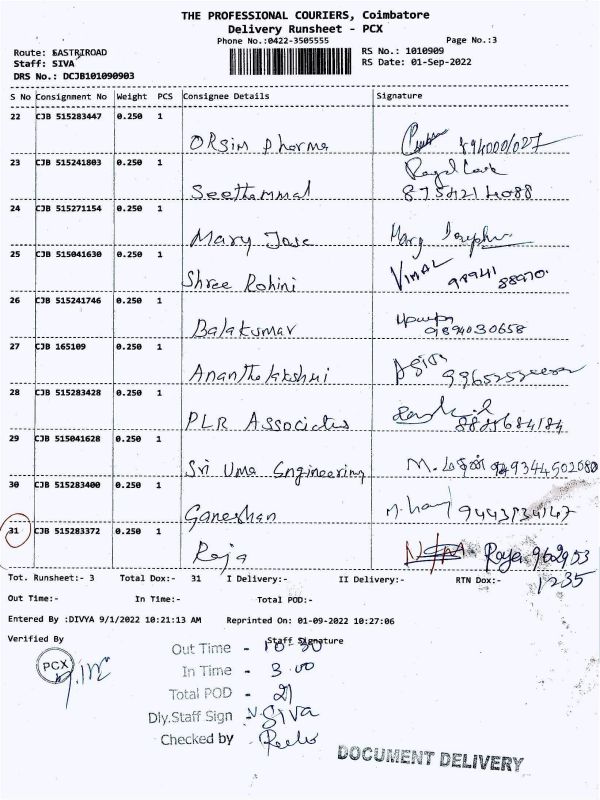 THE PROFESSIONAL COURIERS, Coimbatore
Delivery Runsheet - PCX
Phone No.:0422-3505555 Page No.:3
Route: EASTRIROAD RS No.: 1010909
Staff: SIVA RS Date: 01-Sep-2022
DRS No.: DCJB101090903
S No Consignment No Weight PCS Consignee Details Signature
22 CJB 515283447 0.250 1
ORSim Pharma
23 CJB 515241803 0.250 1
Seethammal 8754214088
24 CJB 515271154 0.250 1
Mary Jose Mary Josephin
25 CJB 515041630 0.250 1
Shree Rohini VIMAL 98941 88970
26 CJB 515241746 0.250 1
Balakumar 9894030658
27 CJB 165109 0.250 1
Ananthalakshmi
28 CJB 515283428 0.250 1
PLR Associates
29 CJB 515041628 0.250 1
Sri Uma Engineering M.
30 CJB 515283400 0.250 1
Ganeshan
31 CJB 515283372 0.250 1
Raja Raja 962953
1235
Tot. Runsheet:- 3 Total Dox:- 31 I Delivery:- II Delivery:- RTN Dox:-
Out Time:- In Time:- Total POD:-
Entered By :DIVYA 9/1/2022 10:21:13 AM Reprinted On: 01-09-2022 10:27:06
Verified By Staff Signature
PCX
Out Time - 10-30
In Time - 3.00
Total POD - 21
Dly.Staff Sign - V. Siva
Checked by -
DOCUMENT DELIVERY